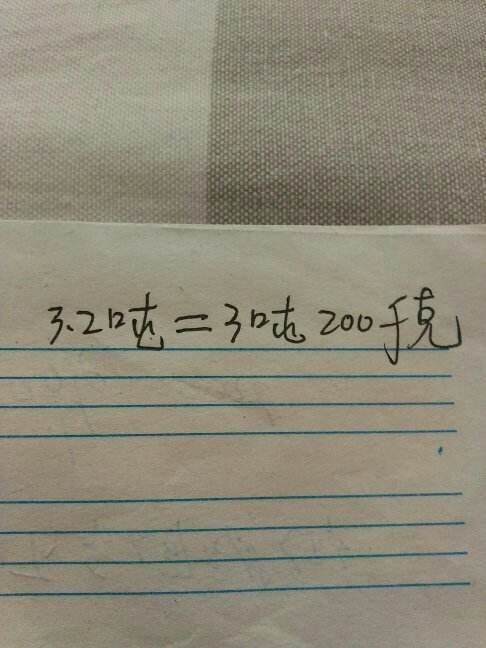 3.2吨=3吨200千克